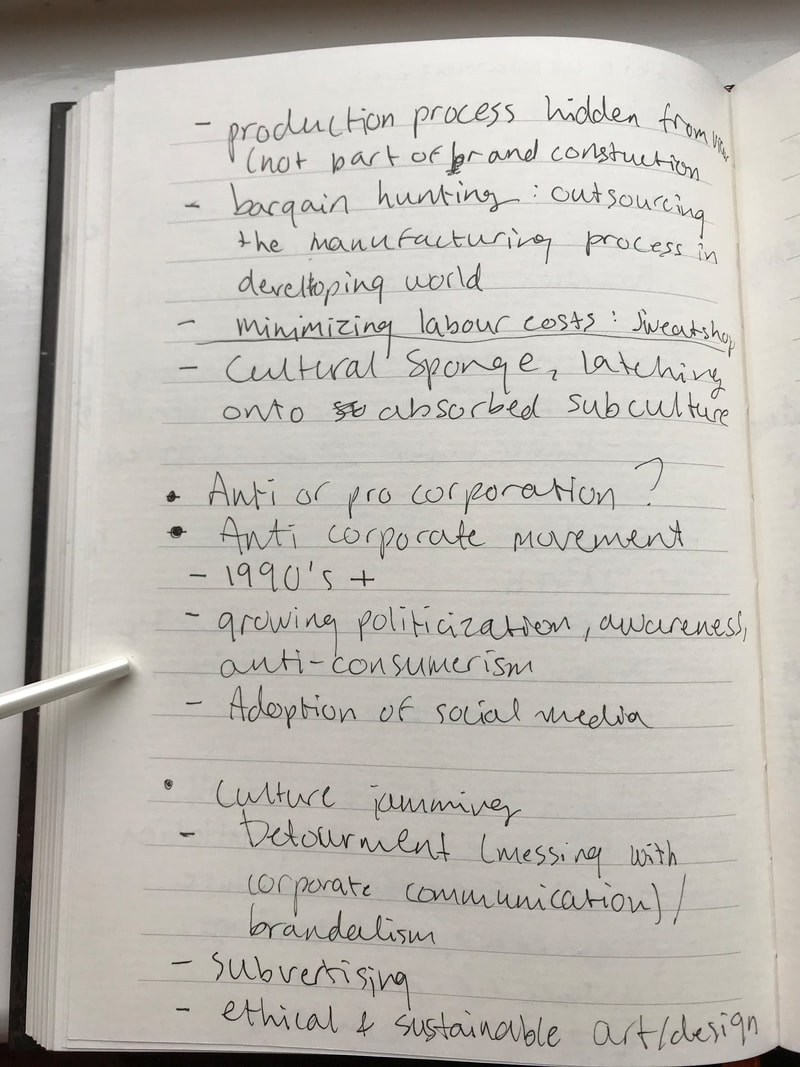 - production process hidden from view
(not part of brand constuction
- bargain hunting : outsourcing
the manufacturing process in
develtoping world
- minimizing labour costs : Sweatshop
- Cultural Sponge, latching
onto absorbed subculture
• Anti or pro corporation ?
• Anti corporate movement
- 1990's +
- growing politicization, awareness,
anti-consumerism
- Adoption of social media
• Culture jamming
- Detourment (messing with
corporate communication) /
brandalism
- subvertising
- ethical & sustainable art/design